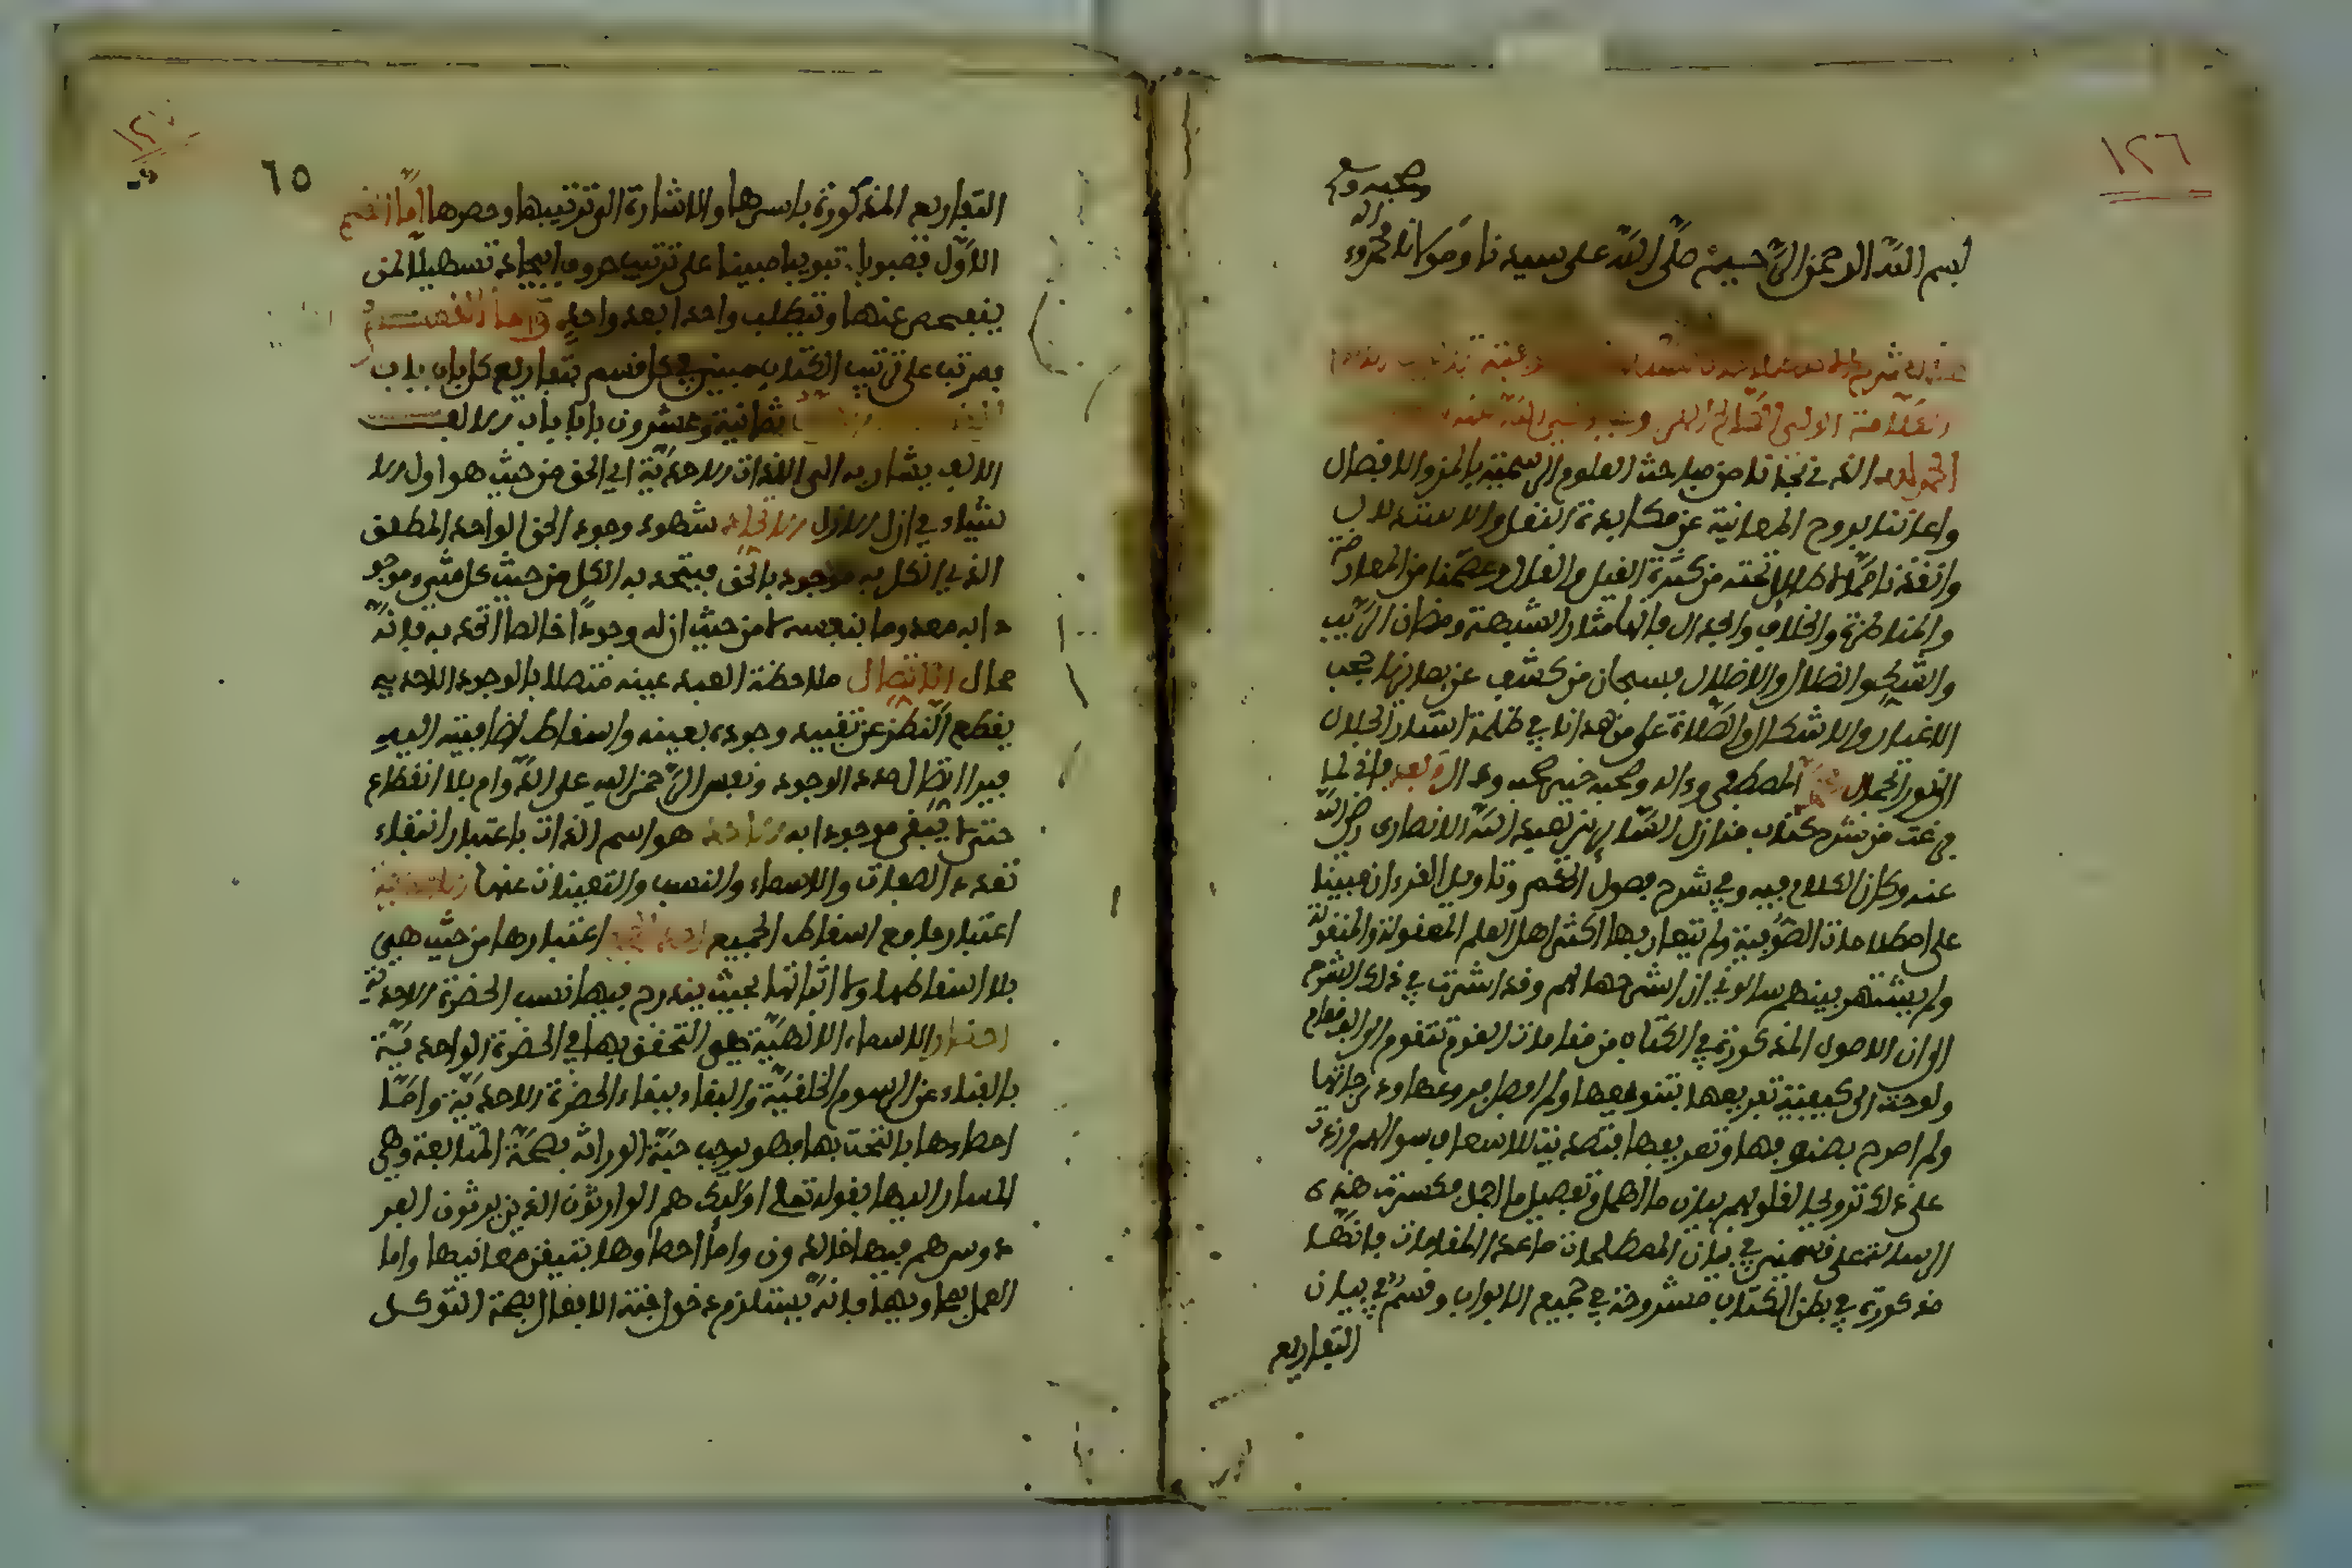 ١٢٦
وصحبه وسلم
بسم الله الرحمن الرحيم صلى الله على سيدنا ومولانا محمد وءاله
الحمد لله الذي نجانا من مباحث العلوم الرسمية بالمن والافضال
واغنانا بروح المعاينة عن مكابدة النقل والاستدلال
وانقذنا مما لا طائل تحته من كثرة القيل والقال وعصمنا من المعارضة
والمناظرة والخلاف والجدال فانها مثار الشبهة ومظان الريب
والشك والضلال والاضلال فسبحان من كشف عن بصائرنا حجب
الاغيار والاشكال والصلاة على من هدانا في ظلمة استار الجلال
النور الجمال محمد المصطفى وءاله وصحبه خير صحب وءال وبعد فاني لما
فرغت من شرح كتاب منازل السايرين لعبد الله الانصاري رضي الله
عنه وكان الكلام فيه وفي شرح فصوص الحكم وتاويل القرءان مبينا
على اصطلاحات الصوفية ولم يتعارفها اكثر اهل العلم المعقولة والمنقولة
ولم يشتهر بينهم سالوني ان اشرحها لهم وقد اشرت في ذلك الشرح
الى ان الاصول المذكورة في الكتاب من مقامات القوم تتقوم الى الف مقام
ولوحت الى كيفية تفريعها بتنويعها ولم افصل فروعها ودرجاتها
ولم اصرح بصنوفها وتعريفها فتصديت للاسعاف بسوالهم وزدت
على ذلك ترويحا لقلوبهم بيان ما اهمل وتفصيل ما اجمل فكسرت هذه
الرسالة على قسمين في بيان المصطلحات ما عدا المقامات فانها
مذكورة في بطن الكتاب مشروحة في جميع الابواب وقسم في بيان
التفاريع
٦٥
التفاريع المذكورة باسرها والاشارة الى ترتيبها وحصرها اما القسم
الاول فمبوبا تبويبا مبينا على ترتيب حروف ابجد تسهيلا لمن
يتفحص عنها وتطلب واحدا بعد واحد واما القسم
فمرتب على ترتيب الكتاب مبين في كل قسم تفاريع كل باب باب
ثمانية وعشرون بابا باب الالف
الالف يشار به الى الذات الاحدية اي الحق من حيث هو اول الا
شياء في ازل الازل الاتحاد شهود وجود الحق الواحد المطلق
الذي الكل به موجود بالحق فيتحد به الكل من حيث كل شيء موجو
دا به معدوما بنفسه لا من حيث ان له وجودا خاصا اتحد به فانه
محال الاتصال ملاحظة العبد عينه متصلا بالوجود الاحدي
بقطع النظر عن تقييد وجوده بعينه واسقاط اضافته اليه
فيرا اتصال مدد الوجود ونفس الرحمن اليه على الدوام بلا انقطاع
حتى يبقى موجودا به الاحد هو اسم الذات باعتبار انتفاء
تعدد الصفات والاسماء والنسب والتعينات عنها الاحدية
اعتبارها مع اسقاط الجميع احدية الجمع اعتبارها من حيث هي
بلا اسقاطها ولا اثباتها بحيث يندرج فيها نسب الحضرة الاحدية
احصاء الاسماء الالهية هو التحقق بها في الحضرة الواحدية
بالفناء عن الرسوم الخلقية والبقاء ببقاء الحضرة الاحدية واما
احصاوها بالتخلق بها فهو يوجب جنة الوراثة بصحة المتابعة وهي
المشار اليها بقوله تعالى اوليك هم الوارثون الذين يرثون الفر
دوس هم فيها خالدون واما احصاوها بتيقن معانيها واما
العمل بفحاويها فانه يستلزم دخول جنة الافعال بصحة التوكل